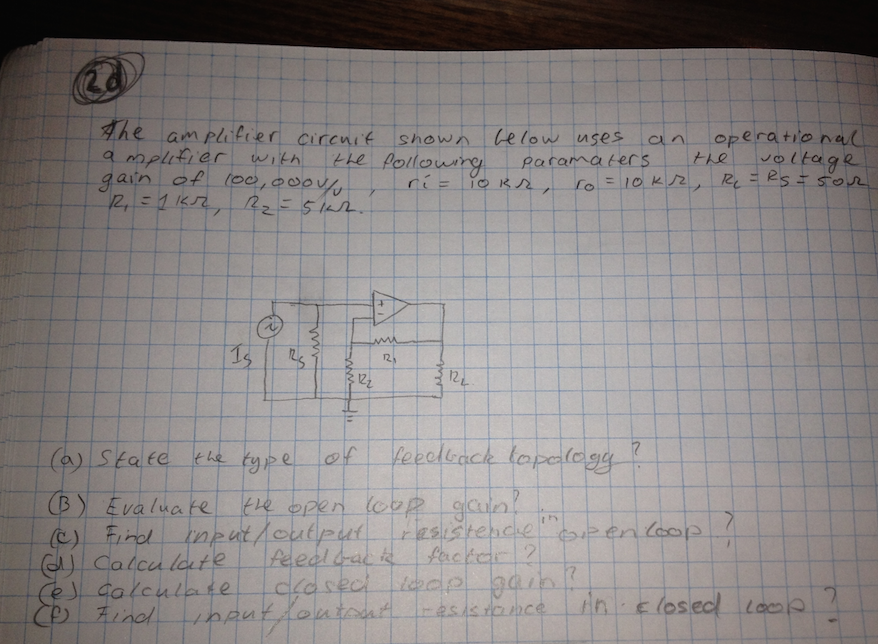 2d
The amplifier circuit shown below uses an operational
amplifier with the following paramaters the voltage
gain of 100,000V/V, ri = 10KΩ, ro = 10KΩ, RL = RS = 50Ω
R1 = 1KΩ, R2 = 5KΩ.
+
-
i
Is
Rs
R1
R2
RL
(a) State the type of feedback topology?
(B) Evaluate the open loop gain?
(c) Find input/output resistence in open loop?
(d) Calculate feedback factor?
(e) Calculate closed loop gain?
(f) Find input/output resistance in closed loop?